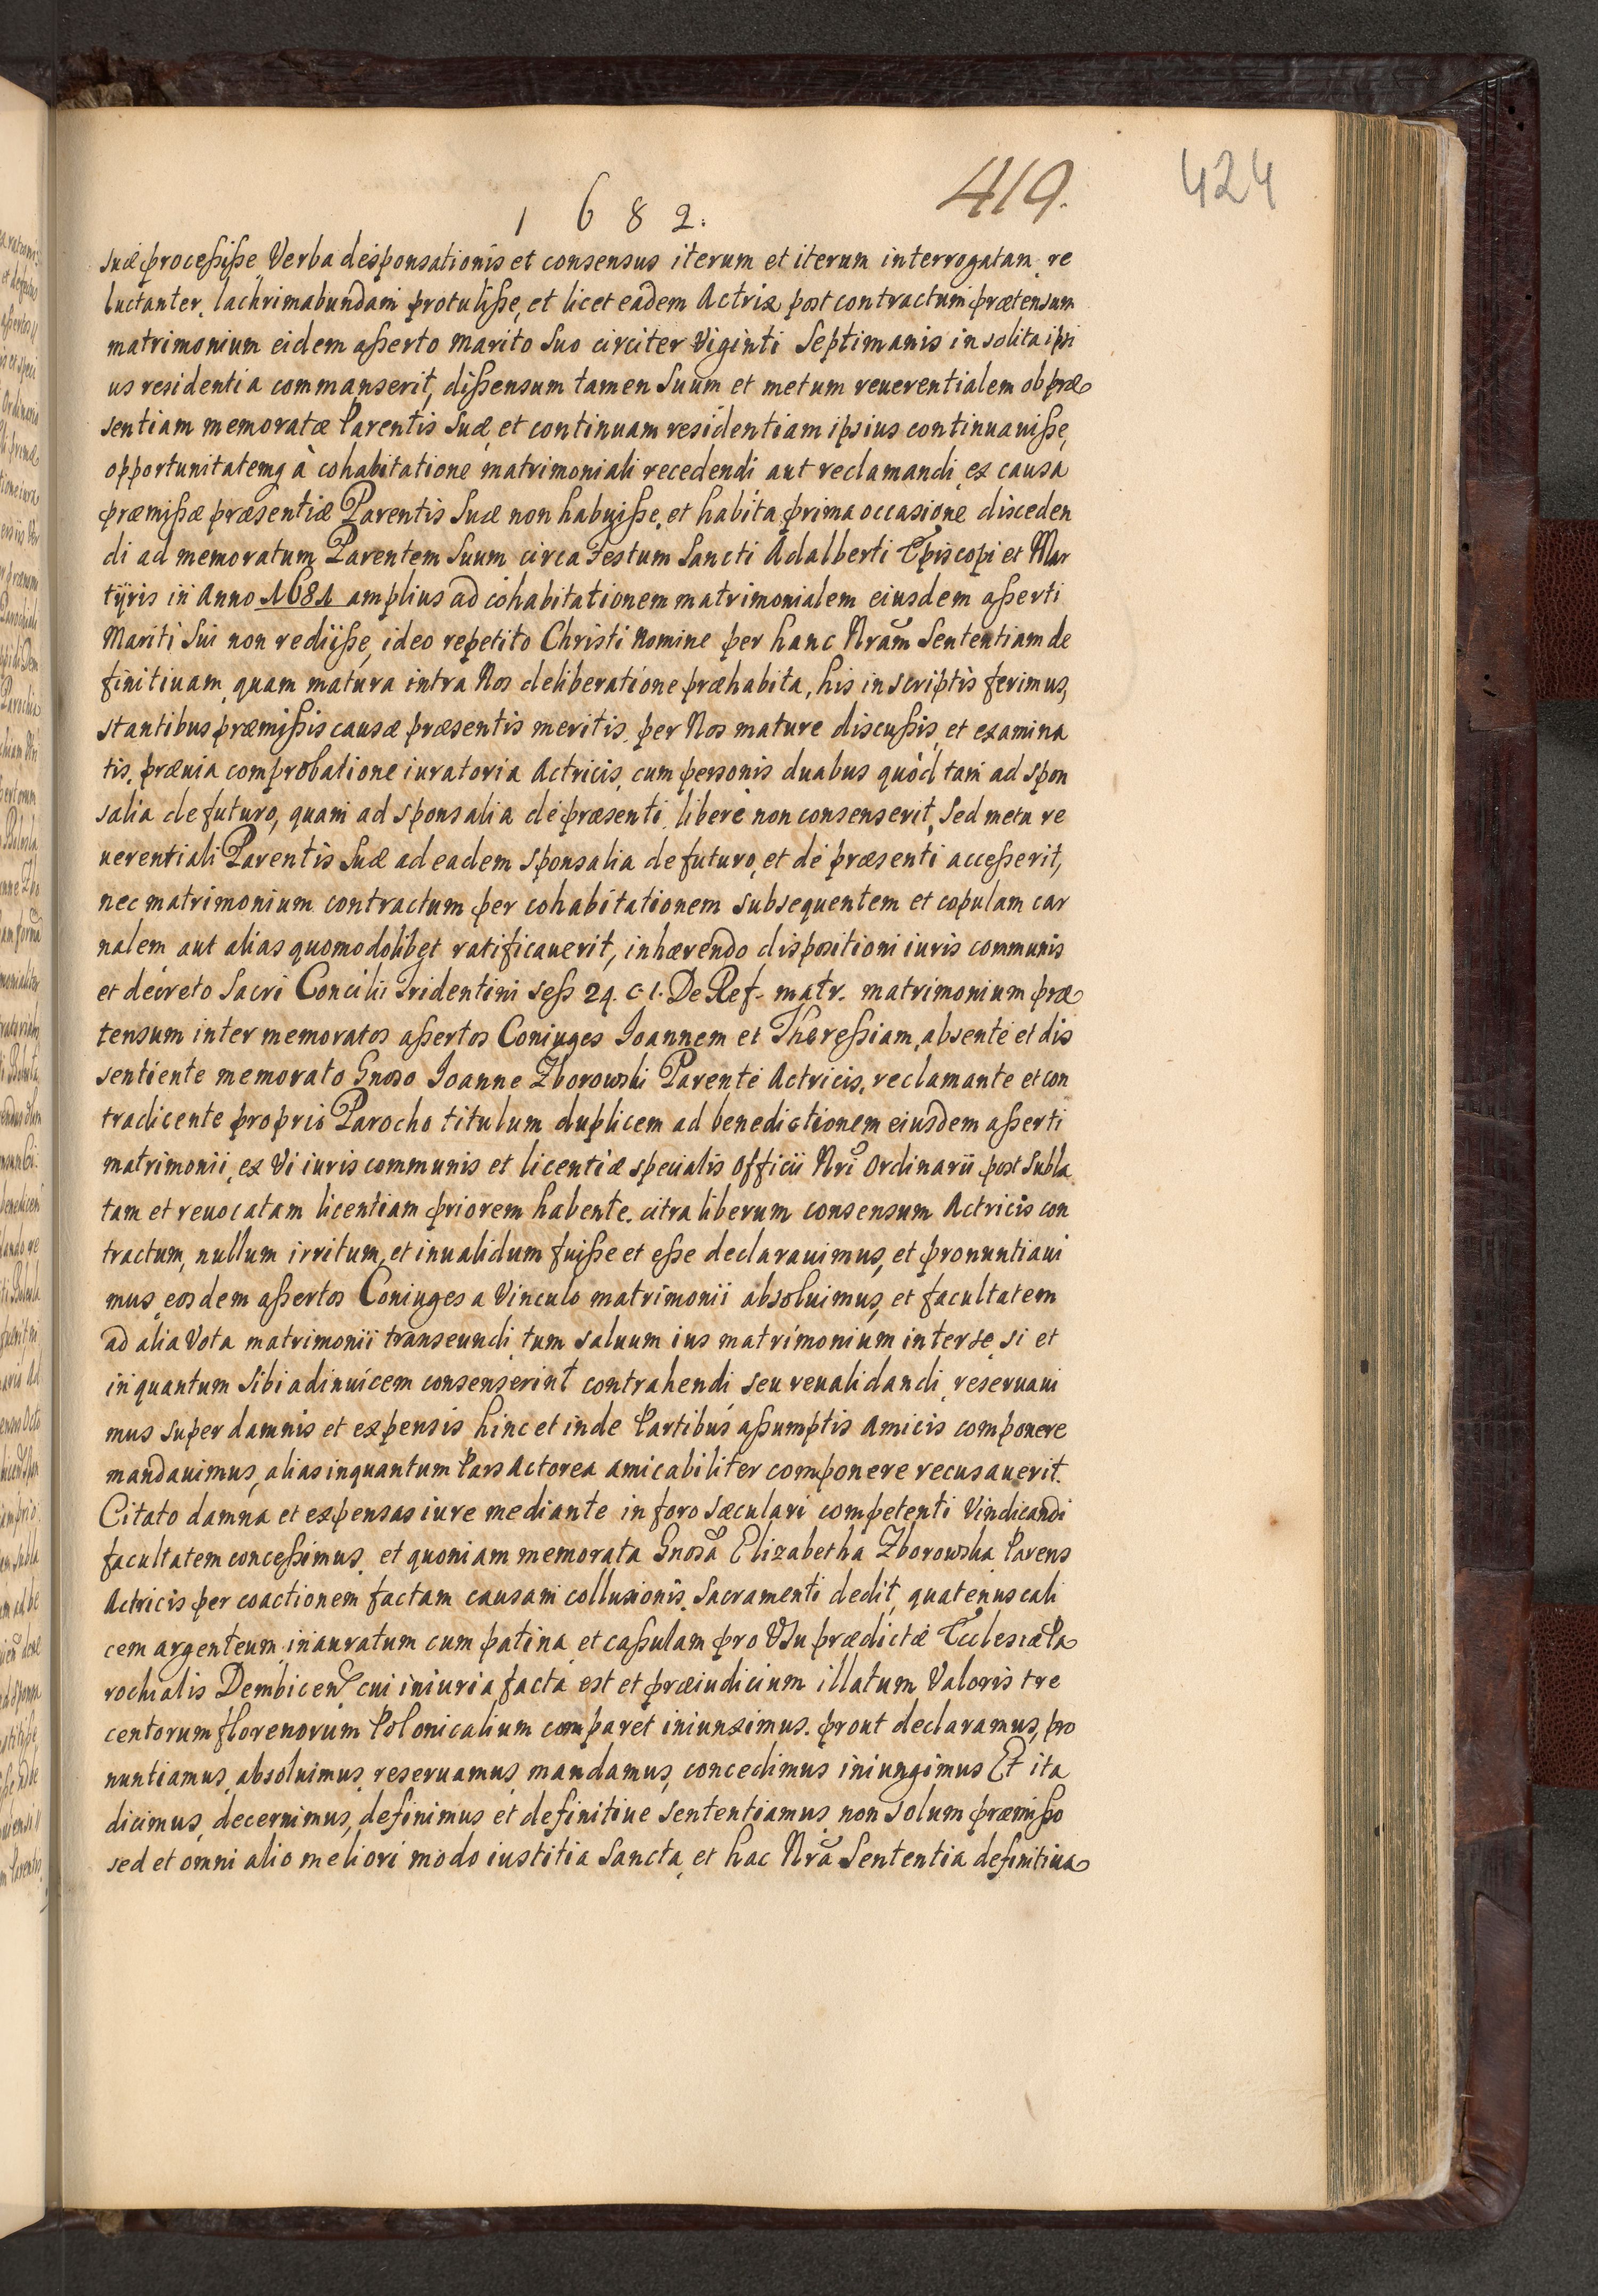 424
419.
1 6 8 2.
suæ processisse Verba desponsationis et consensus iterum et iterum interrogatam re
luctanter, lachrimabundam protulisse, et licet eadem Actrix post contractum prætensum
matrimonium eidem asserto Marito Suo circiter Viginti Septimanis in solita ipsi
us residentia commanserit, dissensum tamen Suum et metum reuerentialem ob præ
sentiam memoratæ Parentis Suæ, et continuam residentiam ipsius continuauisse,
opportunitatemq à cohabitatione matrimoniali recedendi aut reclamandi, ex causa
præmissæ præsentiæ Parentis Suæ non habuisse, et habita prima occasione disceden
di ad memoratum Parentem Suum circa Festum Sancti Adalberti Episcopi et Mar
tÿris in Anno 1681 amplius ad cohabitationem matrimonialem eiusdem asserti
Mariti Sui non redÿsse, ideo repetito Christi Nomine per hanc Nram Sententiam de
finitiuam, quam matura intra Nos deliberatione præhabita, his in scriptis ferimus,
stantibus præmissis causæ præsentis meritis, per Nos mature discussis, et examina
tis, præuia comprobatione iuratoria Actricis, cum personis duabus quòd tam ad spon
salia de futuro, quam ad sponsalia de præsenti, liberè non consenserit, Sed metu re
uerentiali Parentis Suæ ad eadem Sponsalia de futuro, et de præsenti accesserit,
nec matrimonium contractum per cohabitationem subsequentem et copulam car
nalem aut alias quomodolibet ratificauerit, inhærendo dispositioni iuris communis
et decreto Sacri Concilii Tridentini sess 24. c 1. De Ref. matr. matrimonium præ
tensum inter memoratos assertos Coniuges Ioannem et Theressiam, absente et dis
sentiente memorato Gnoso Ioanne Zborowski Parente Actricis, reclamante et con
tradicente proprio Parocho titulum duplicem ad benedictionem eiusdem asserti
matrimonii, ex Vi iuris communis et licentiæ specialis Officii Nri Ordinarii post Subla
tam et reuocatam licentiam priorem habente. citra liberum consensum Actricis con
tractum, nullum irritum, et inualidum fuisse et esse declarauimus, et pronuntiaui
mus, eosdem assertos Coniuges a Vinculo matrimonii absoluimus, et facultatem
ad alia Vota matrimonii transeundi, tum saluum ius matrimonium inter se, si et
in quantum Sibi adinuicem consenserint contrahendi seu reualidandi, reseruaui
mus super damnis et expensis hinc et inde Partibus assumptis Amicis componere
mandauimus, alias inquantum Pars Actorea amicabiliter componere recusauerit.
Citato damna et expensas iure mediante in foro sæculari competenti Vindicandi
facultatem concessimus, et quoniam memorata Gnosa Elizabetha Zborowska Parens
Actricis per coactionem factam causam collusionis Sacramenti dedit, quatenus cali
cem argenteum inauratum cum patina et cassulam pro Vsu prædictæ Ecclesiæ Pa
rochialis Dembicen cui iniuria facta est et præiudicium illatum Valoris tre
centorum florenorum Polonicalium comparet iniunximus. prout declaramus, pro
nuntiamus, absoluimus, reseruamus, mandamus, concedimus iniungimus Et ita
dicimus, decernimus, definimus et definitiue sententiamus non solum præmisso
sed et omni alio meliori modo iustitia Sancta, et hac Nra Sententia definitiua